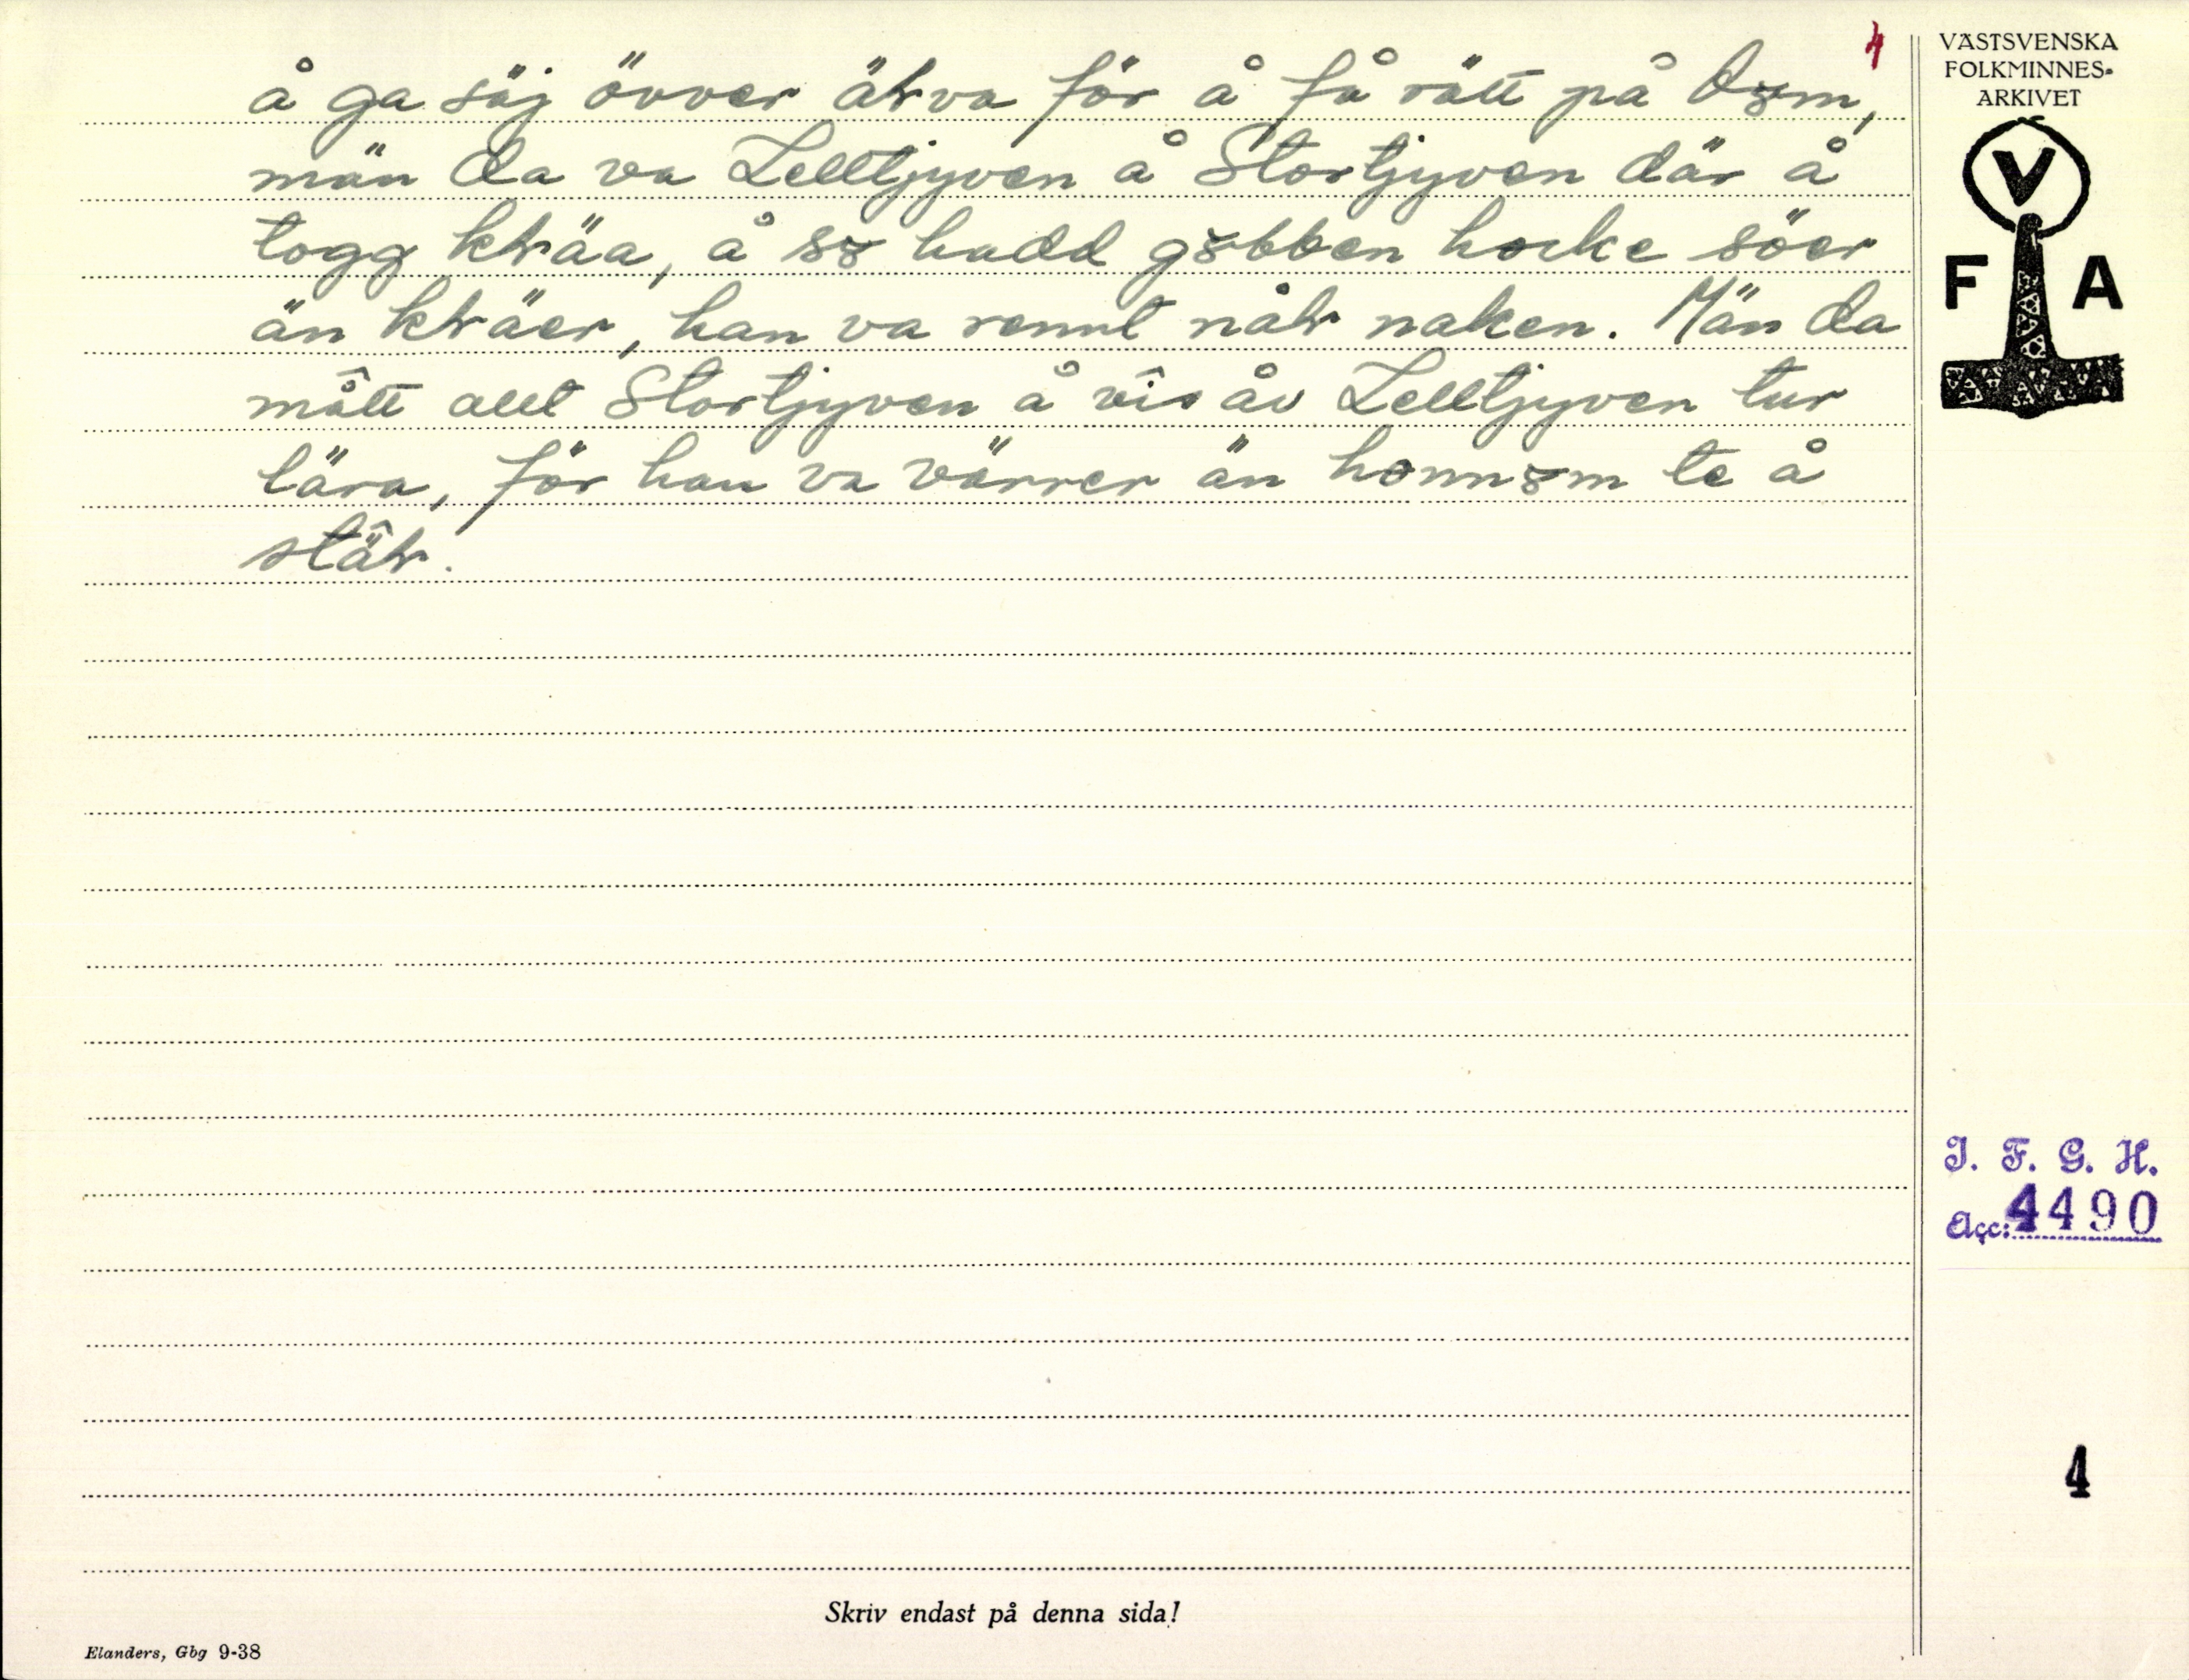 4
å ga säj övver äƚva för å få rätt på dɞm,
män da va Lelltjyven å Stortjyven där å
togg kƚäa, å sɞ hadd gɞbben hocke söer
än kƚäer, han va rennt nåƚ naken. Män da
mått allt Stortjyven å vîs åv Lelltjyven tur
lära, för han va värrer än honnɞm te å
stäƚ.
VÄSTSVENSKA
FOLKMINNES-
ARKIVET
V
F A
I. F. G. H.
Acc: 4490
4
Skriv endast på denna sida!
Elanders, Gbg 9-38